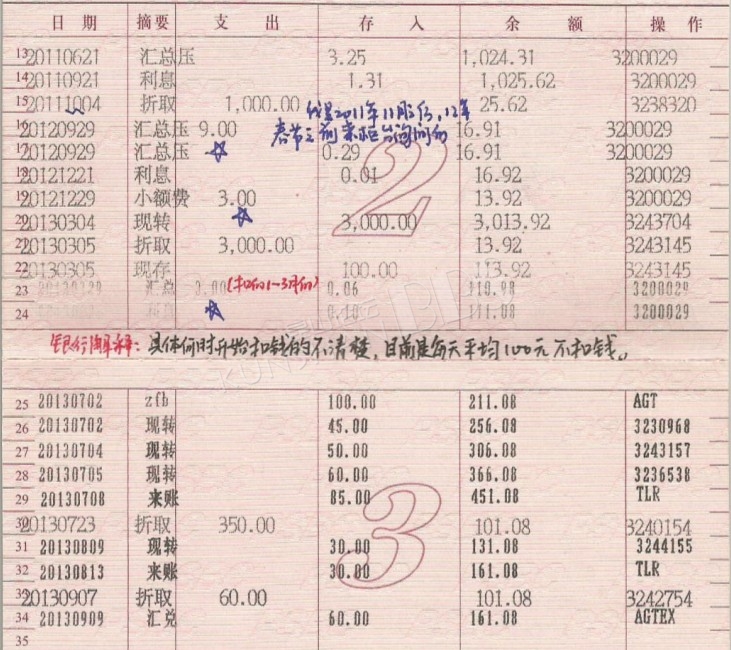 日 期 摘要 支 出 存 入 余 额 操 作
13 20110621 汇总压 3.25 1,024.31 3200029
14 20110921 利息 1.31 1,025.62 3200029
15 20111004 折取 1,000.00 25.62 3238320
16 20120929 汇总压 9.00 16.91 3200029
17 20120929 汇总压 0.29 16.91 3200029
18 20121221 利息 0.01 16.92 3200029
19 20121229 小额费 3.00 13.92 3200029
20 20130304 现转 3,000.00 3,013.92 3243704
21 20130305 折取 3,000.00 13.92 3243145
22 20130305 现存 100.00 113.92 3243145
23 汇总 3.00 (扣的1~3月的) 0.06 110.98 3200029
24 0.10 111.08 3200029
2
银行解释: 具体何时开始扣钱的不清楚, 目前是每天平均100元不扣钱。
25 20130702 zfb 100.00 211.08 AGT
26 20130702 现转 45.00 256.08 3230968
27 20130704 现转 50.00 306.08 3243157
28 20130705 现转 60.00 366.08 3236538
29 20130708 来账 85.00 451.08 TLR
30 20130723 折取 350.00 101.08 3240154
31 20130809 现转 30.00 131.08 3244155
32 20130813 来账 30.00 161.08 TLR
33 20130907 折取 60.00 101.08 3242754
34 20130909 汇兑 60.00 161.08 AGTEX
35
3